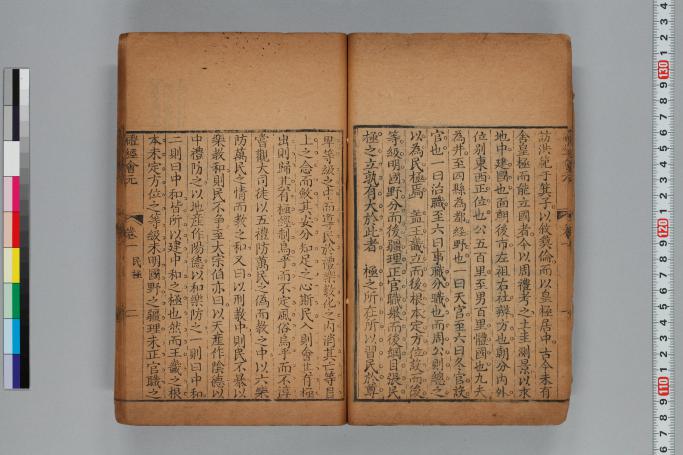 訪洪範于箕子以敘彝倫而以皇極居中古今未有
舍皇極而能立國者今以周禮考之土圭測景以求
地中建國也面朝後市左祖右社辨方也朝分內外
位別東西正位也公五百里至男百里體國也九夫
為井至四縣為都經野也一曰天官至六曰冬官設
官也一曰治職至六曰事職分職也而周公則總之
以為民極焉蓋王畿立而後根本定方位設而後
等級明國野分而後疆理正官職舉而後綱目張民
極之立孰有大於此者 極之所在所以習民於尊
卑等級之中而導民於禮樂教化之內消其亡等冒
上之念而啟其安分知足之心斯民入則會其有極
出則歸其有極經制烏乎而不定風俗烏乎而不淳
嘗觀大司徒以五禮防萬民之偽而教之中以六樂
防萬民之情而教之和又曰以刑教中則民不暴以
樂教和則民不爭至大宗伯亦曰以天產作陰德以
中禮防之以地產作陽德以和樂防之一則曰中和
二則曰中和皆所以建中和之極也然而王畿之根
本未定方位之等級未明國野之疆理未正官職之
禮經會元
卷一 民極
二